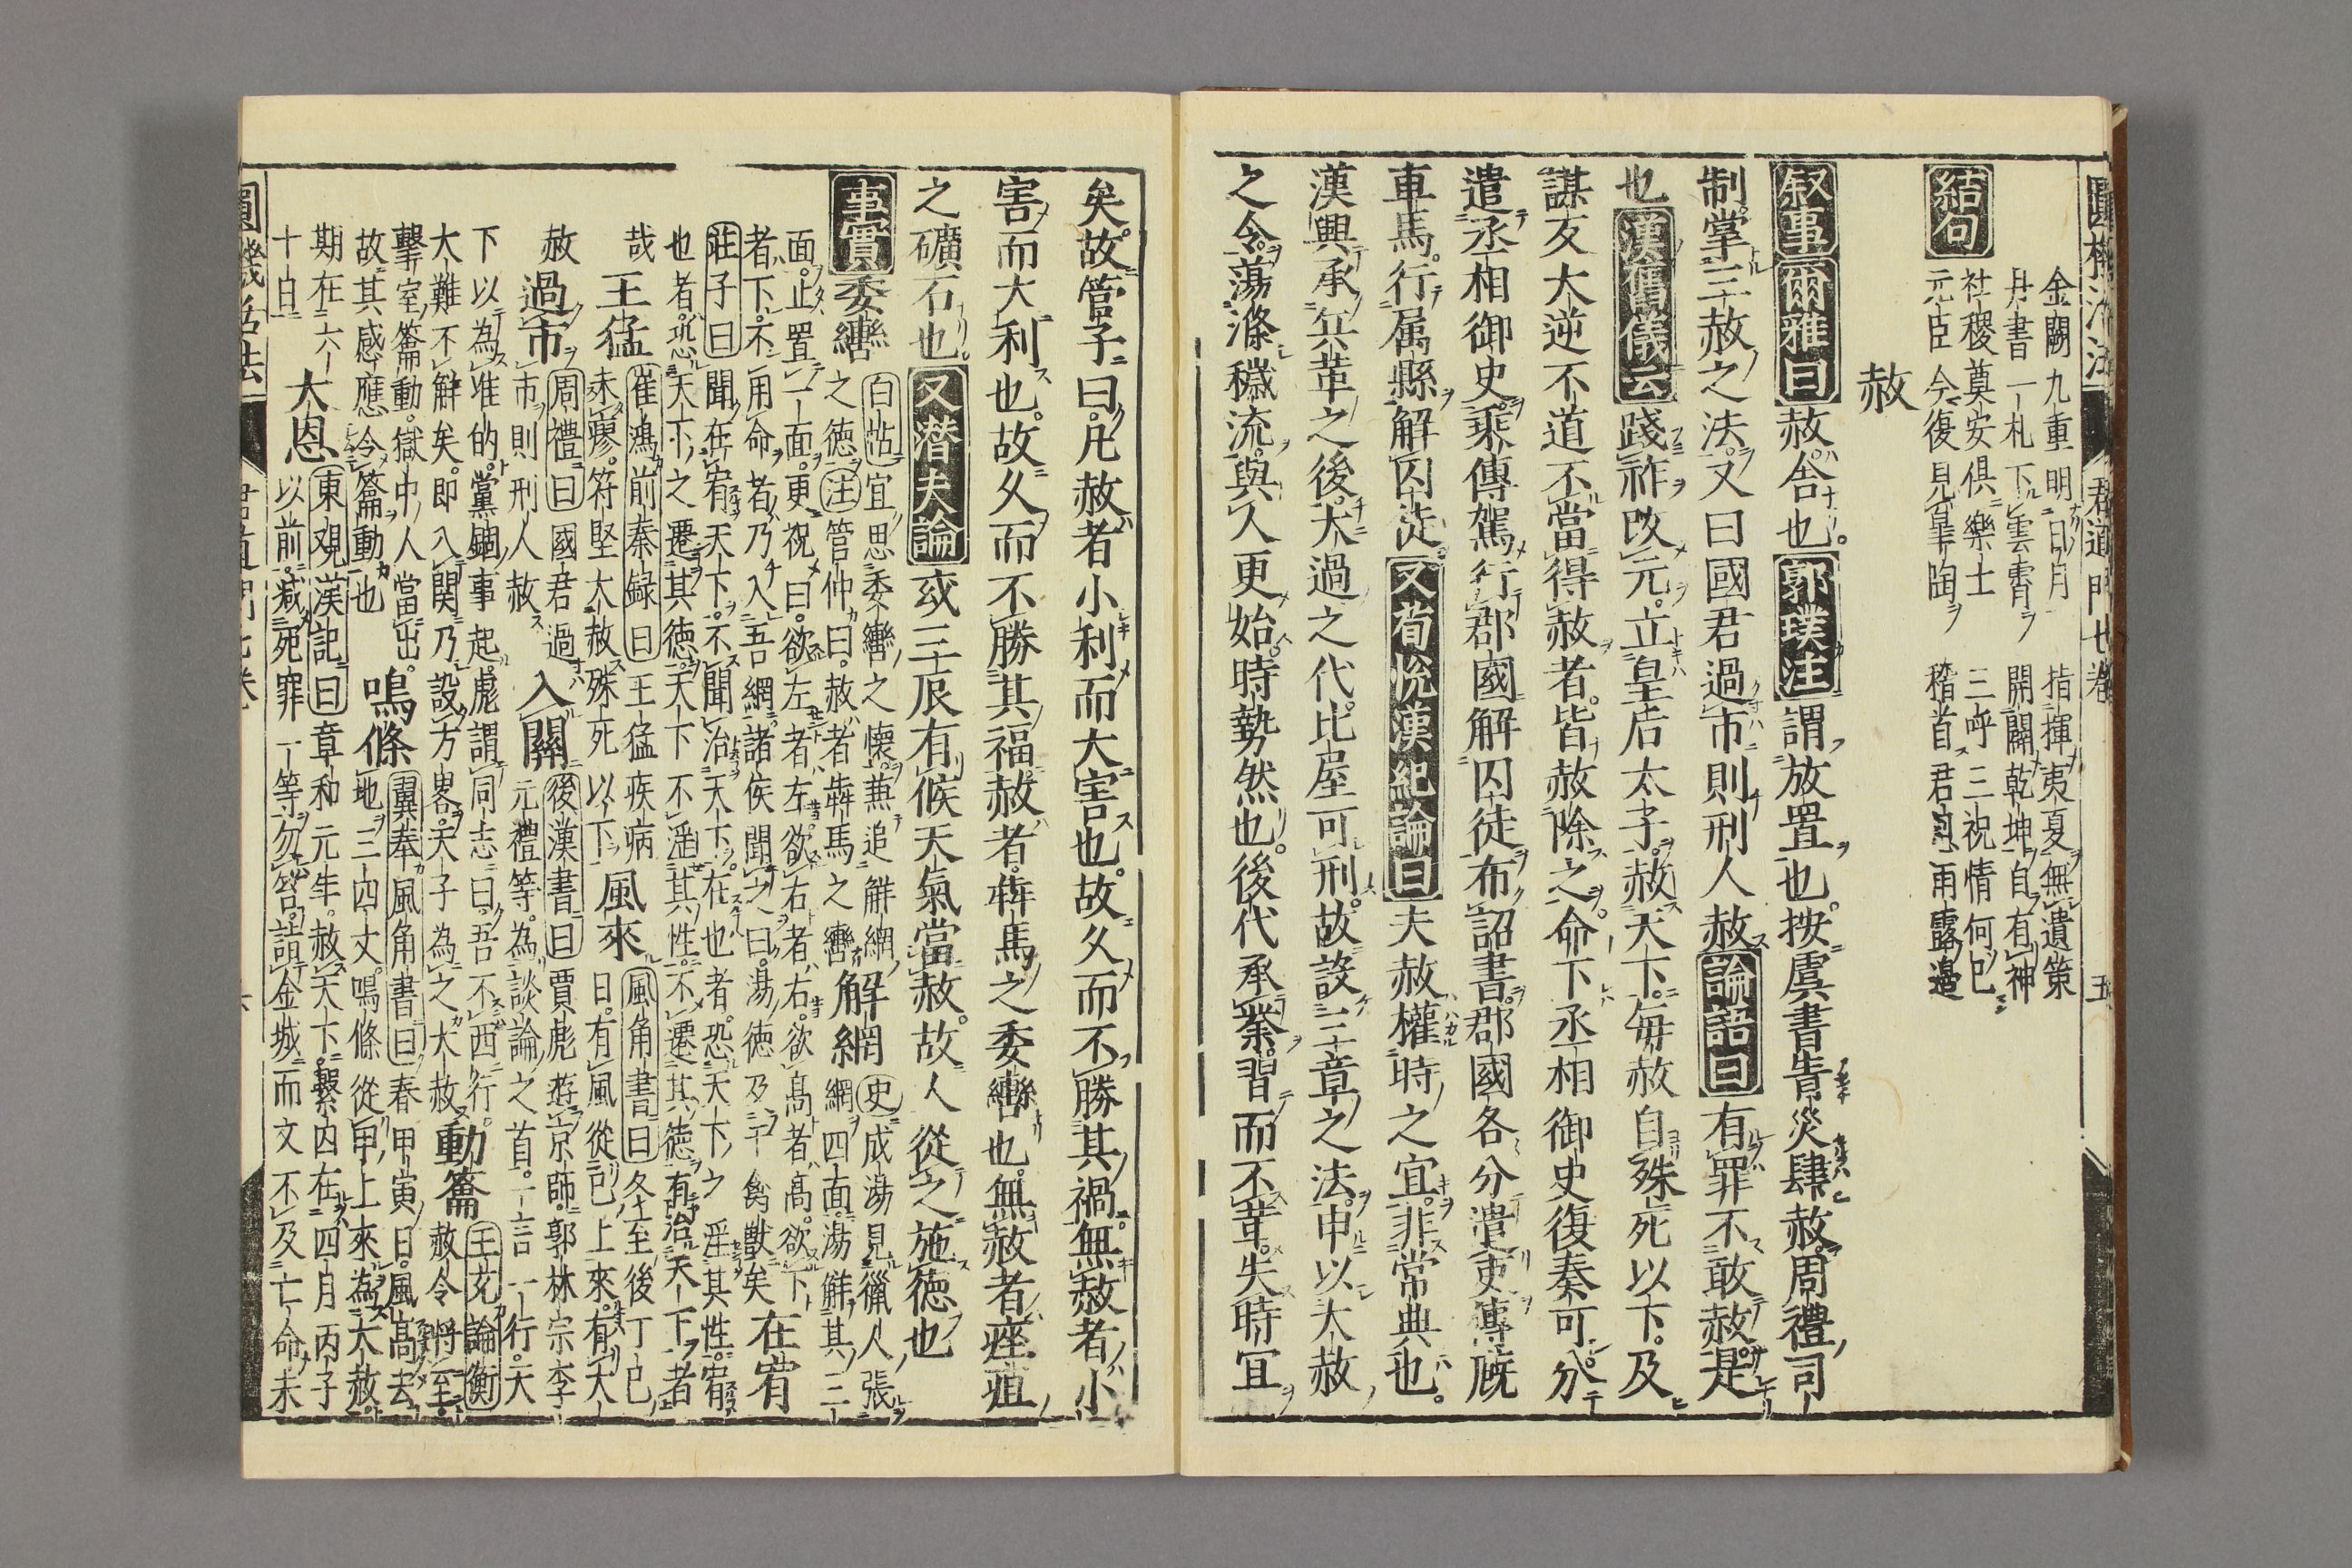 圓機活法 君道門七卷 五
金闕九重明日月 指揮夷夏無遺策
丹書一札下雲霄 開闢乾坤自有神
結句 社稷奠安俱樂土 三呼三祝情何已
元臣今復見皐陶 稽首君恩雨露邊
赦
叙事 爾雅曰 赦舎也 郭璞注 謂放置也按虞書眚災肆赦周禮司
制掌三赦之法又曰國君過市則刑人赦 論語曰 有罪不敢赦是
也 漢舊儀云 踐祚改元立皇后太子赦天下毎赦自殊死以下及
謀反大逆不道不當得赦者皆赦除之命下丞相御史復奏可分
遣丞相御史乘傳駕行郡國解囚徒布詔書郡國各分遣吏傳厩
車馬行属縣解囚徒 又荀悦漢紀論曰 夫赦權時之宜非常典也
漢興承兵革之後大過之代比屋可刑故設三章之法申以大赦
之令蕩滌穢流與人更始時勢然也後代承業習而不革失時宜
矣故管子曰凡赦者小利而大害也故久而不勝其禍無赦者小
害而大利也故久而不勝其福赦者犇馬之委轡也無赦者痤疽
之礦石也 又潜夫論 或三辰有候天氣當赦故人從之施徳也
事實 委轡 白帖 宜思委轡之懷兼追觧網
之徳 注 管仲曰赦者犇馬之轡 解網 史 成湯見獵人張
網四面湯觧其三
面止置一面更祝曰欲左者左欲右者右欲髙者髙欲下
者下不用命者乃入吾網諸侯聞之曰湯徳及于禽獣矣 在宥
莊子曰 聞在宥天下不聞治天下在也者恐天下之滛其性宥
也者恐天下之遷其徳天下不滛其性不遷其徳有治天下者
哉 王猛 崔鴻前秦録曰 王猛疾病
未瘳符堅大赦殊死以下 風來 風角書曰 冬至後丁巳
日有風從巳上來有大
赦 過市 周禮曰 國君過
市則刑人赦 入關 後漢書曰 賈彪遊京師郭林宗李
元禮等為談論之首一言一行天
下以為准的黨錮事起彪謂同志曰吾不西行
大難不觧矣即入関乃設方畧天子為之大赦 動籥 王充論衡
赦令將至
撃室籥動獄中人當出
故其感應令籥動也 鳴條 翼奉風角書曰 春甲寅日風髙去
地三四丈鳴條從甲上來為大赦
期在六
十日 大恩 東觀漢記曰 章和元年赦天下繫囚在四月丙子
以前減死罪一等勿笞詣金城而文不及亡命未
圓機活法 君道門七卷 六